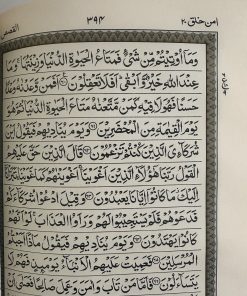 امن خلق ۲۰
۳۹۴
القصص
وَمَا أُوتِيتُم مِّن شَيْءٍ فَمَتَاعُ الْحَيٰوةِ الدُّنْيَا وَزِينَتُهَا وَمَا
عِندَ اللَّهِ خَيْرٌ وَأَبْقَىٰ أَفَلَا تَعْقِلُونَ أَفَمَن وَعَدْنٰهُ وَعْدًا
حَسَنًا فَهُوَ لَاقِيهِ كَمَن مَّتَّعْنٰهُ مَتَاعَ الْحَيٰوةِ الدُّنْيَا ثُمَّ هُوَ
يَوْمَ الْقِيٰمَةِ مِنَ الْمُحْضَرِينَ وَيَوْمَ يُنَادِيهِمْ فَيَقُولُ أَيْنَ
شُرَكَاءِيَ الَّذِينَ كُنتُمْ تَزْعُمُونَ قَالَ الَّذِينَ حَقَّ عَلَيْهِمُ
الْقَوْلُ رَبَّنَا هٰؤُلَاءِ الَّذِينَ أَغْوَيْنَا أَغْوَيْنٰهُمْ كَمَا غَوَيْنَا تَبَرَّأْنَا
إِلَيْكَ مَا كَانُوا إِيَّانَا يَعْبُدُونَ وَقِيلَ ادْعُوا شُرَكَاءَكُمْ
فَدَعَوْهُمْ فَلَمْ يَسْتَجِيبُوا لَهُمْ وَرَأَوُا الْعَذَابَ لَوْ أَنَّهُمْ
كَانُوا يَهْتَدُونَ وَيَوْمَ يُنَادِيهِمْ فَيَقُولُ مَاذَا أَجَبْتُمُ
الْمُرْسَلِينَ فَعَمِيَتْ عَلَيْهِمُ الْأَنبَاءُ يَوْمَئِذٍ فَهُمْ لَا
يَتَسَاءَلُونَ فَأَمَّا مَن تَابَ وَءَامَنَ وَعَمِلَ صَالِحًا فَعَسَىٰ أَن